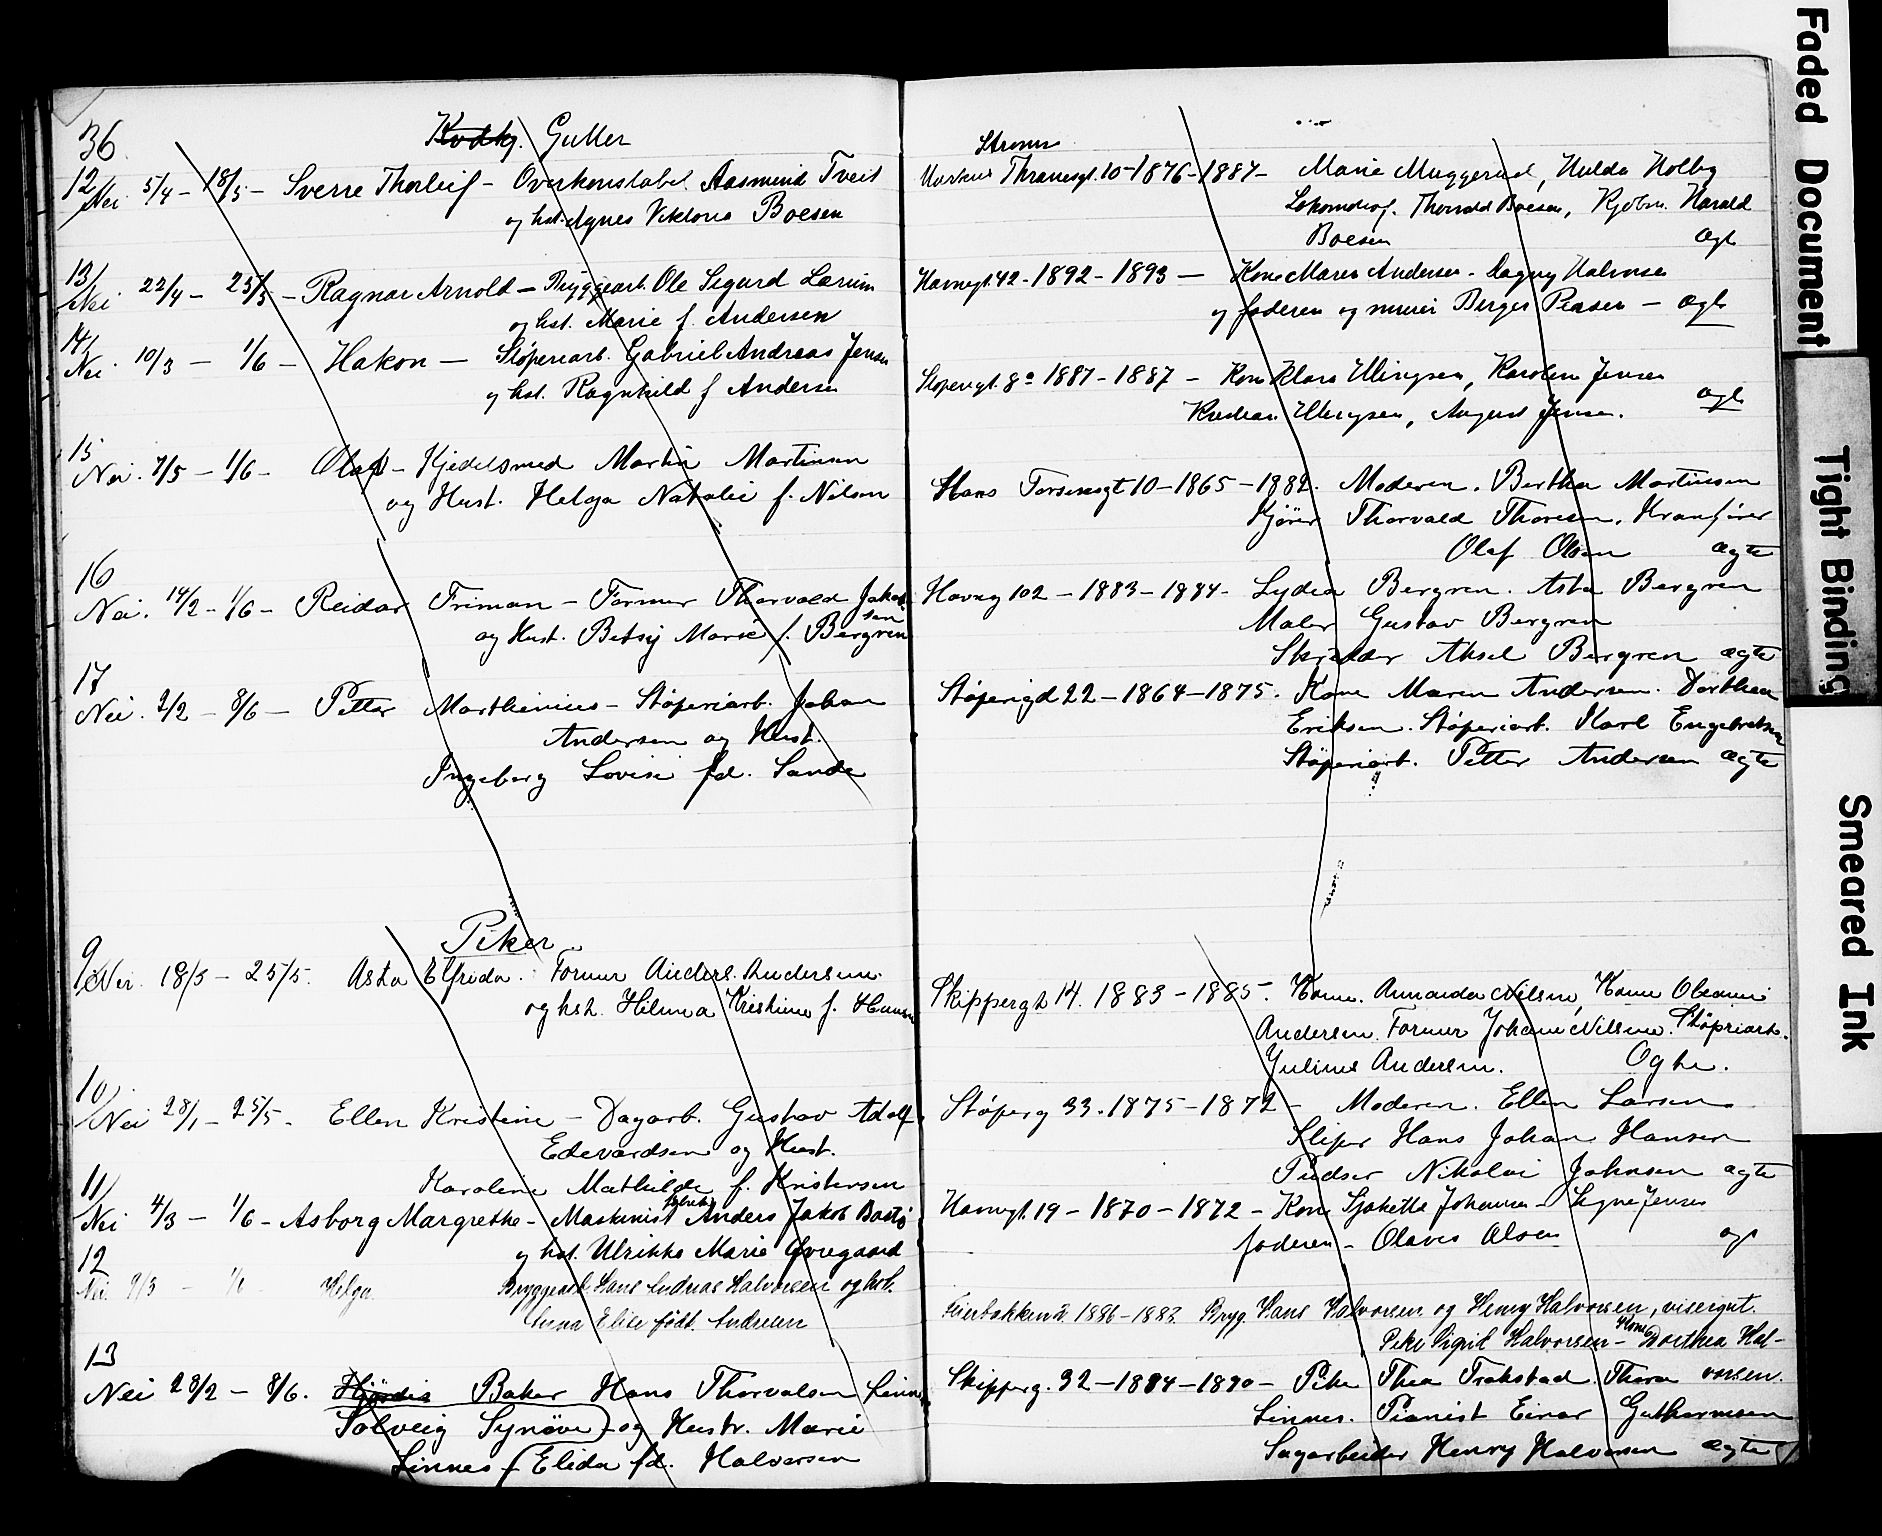 36
Gutter
12
Nei 5/4 - 18/5 - Sverre Thorleif - Overkonstabel Aasmund Tveit
og hst. Agnes Viktoria Boesen
13
Nei 22/4 - 25/5 - Ragnar Arnold - Bryggearb. Ole Sigurd Lærum
og hst. Marie f. Andersen
14
Nei 10/3 - 1/6 - Hakon - Støperiarb. Gabriel Andreas Jensen
og hst. Ragnhild f Andersen
15
Nei. 7/5 - 1/6 - Olaf - Kjedelsmed Martin Martinsen
og Hust. Helga Natalie f. Nilsen
16
Nei. 14/2 - 1/6 - Reidar Friman - Former Thorvald Jakob
sen
og Hust. Betsy Marie f. Bergren
17
Nei. 2/2 - 8/6 - Petter Marthinius - Støperiarb. Johan
Andersen og Hust.
Ingeborg Lovise fd. Sande
Piker
9
Nei. 18/3 - 25/5. Asta Elfrida. Former Anders Andersen
og hst. Hilma Kristine f. Hansen
10
Nei 28/1 - 25/5 - Ellen Kristine - Dagarb. Gustav Adolf
Edevardsen og Hust.
Karoline Mathilde f. Kristensen
11
Nei 4/3 - 1/6 - Asborg Margrethe - Maskinist Anders Jakob Bastø
og hst. Ulrikke Marie Øvregaard
12
Nei 9/3 - 1/6 Helga Bryggearb. Hans Andreas Halvorsen og hst.
Anna Elise født Andresen
13
Nei 28/2 - 8/6. Hjørdis Baker Hans Thorvalsen Linnes
Solveig Synøve og Hustr. Marie
Linnes Elida fd. Halversen
Strømsø
Markus Thranesgt. 10 - 1876 - 1887 - Marie Muggerud, Hulda Holby
Lokomotivf. Thorvald Boesen, Kjøbm. Harald
Boesen Ægt
Havnegt. 42 - 1892 - 1893 - Kone Maren Andersen - Dagny Halvorsen
og faderen og murer Berger Pensen - Ægte
Støperigt. 8a 1887 - 1887 - Kone Klara Ellingsen, Karoline Jensen
Kristian Ellingsen, August Jensen. ægt
Hans Torsensgt 10 - 1865 - 1882. Moderen. Bertha Martinsen
Kjører Thorvald Thoresen. Kranfører
Olaf Olsen ægte
Havneg 102 - 1883 - 1884 - Lydia Bergren. Asta Bergren
Maler Gustav Bergren
Skredder Aksel Bergren ægte
Støperigd 22 - 1864 - 1875. Kone Maren Andersen. Dorthea
Eriksen. Støperiarb. Karl Engebretsen
Støperiarb. Petter Andersen ægte
Skippergt 14. 1883 - 1885. Kone Amanda Nilsen, Kone Oleanne
Andersen. Former Johan Nilsen. Støpriarb.
Julius Andersen. Ogte.
Støperg 33. 1875 - 1872 - Moderen. Ellen Larsen
Sliper Hans Johan Hansen
Pudser Nikolai Johnsen ægte
Havnegt. 19 - 1870 - 1872 - Kone Sjakette Johannesen - Signe Jensen
faderen - Olaves Olsen ægt
1886 - 1883. Brygg. Hans Halvorsen og Henry Halvorsen, visergut.
Pike Sigrid Halvorsen - Kone Dorthea Hal-
vorsen.
Skipperg. 32 - 1884 - 1890 - Pike Thea Trokstad. Thora
Linnes. Pianist Einar Guthormsen
Sagarbeider Henry Halvorsen ægte
Faded Document
Tight Binding
Smeared Ink